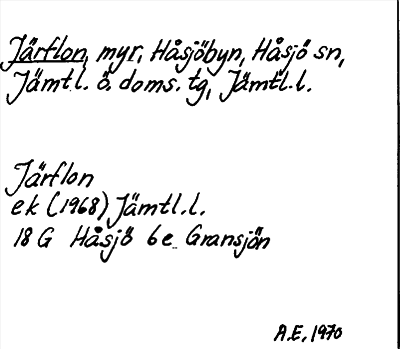 Järflon, myr, Håsjöbyn, Håsjö sn,
Jämt.l. ö. doms. tg, Jämtl.l.
Järflon
ek (1968) Jämtl.l.
18 G Håsjö 6e Gransjön
A.E, 1970